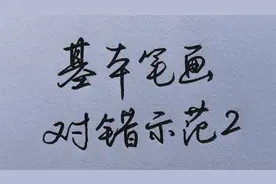 基本笔画
对错示范2